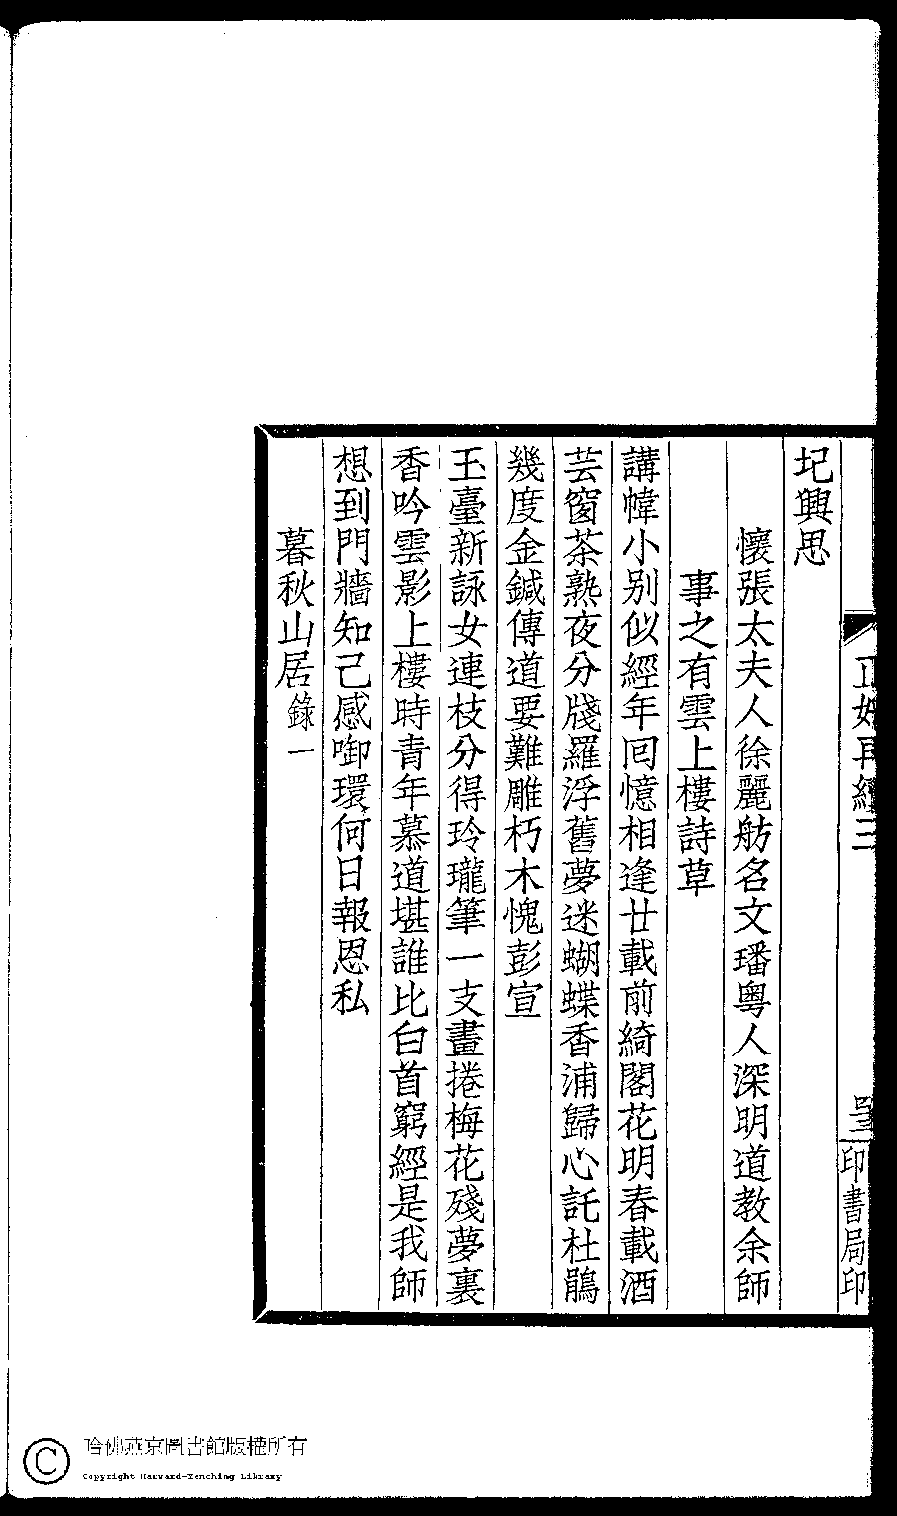 圮興思
懷張太夫人徐麗舫名文璠粵人深明道教余師
事之有雲上樓詩草
講幃小別似經年回憶相逢廿載前綺閣花明春載酒
芸窗茶熟夜分牋羅浮舊夢迷蝴蝶香浦歸心託杜鵑
幾度金鍼傳道要難雕朽木愧彭宣
玉臺新詠女連枝分得玲瓏筆一支畫捲梅花殘夢裏
香吟雲影上樓時青年慕道堪誰比白首窮經是我師
想到門牆知己感啣環何日報恩私
暮秋山居錄一
正始再續三
印書局印
哈佛燕京圖書館版權所有
Copyright Harvard-Yenching Library